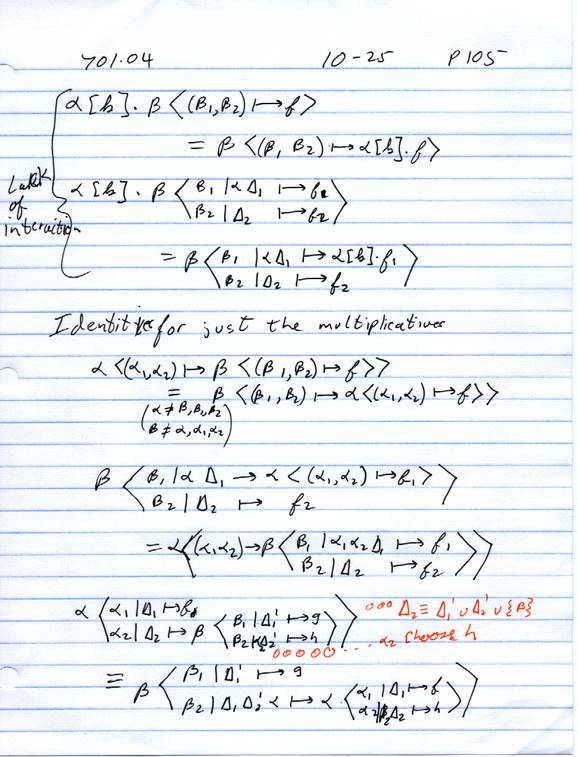 701.04 10-25 P105
α[b]·β⟨(β₁,β₂) ↦ f⟩
= β⟨(β₁,β₂) ↦ α[b]·f⟩
Lack of interaction
α[b]·β⟨β₁|αΔ₁ ↦ f₁
β₂|Δ₂ ↦ f₂⟩
= β⟨β₁|αΔ₁ ↦ α[b]·f₁
β₂|Δ₂ ↦ f₂⟩
Identities for just the multiplicatives
α⟨(α₁,α₂) ↦ β⟨(β₁,β₂) ↦ f⟩⟩
= β⟨(β₁,β₂) ↦ α⟨(α₁,α₂) ↦ f⟩⟩
(α ≠ β,β₁,β₂
β ≠ α,α₁,α₂)
β⟨β₁|αΔ₁ → α⟨(α₁,α₂) ↦ f₁⟩
β₂|Δ₂ ↦ f₂⟩
= α⟨(α₁,α₂) → β⟨β₁|α₁α₂Δ₁ ↦ f₁
β₂|Δ₂ ↦ f₂⟩⟩
α⟨α₁|Δ₁ ↦ f
α₂|Δ₂ ↦ β⟨β₁|Δ₁' ↦ g
β₂|Δ₂' ↦ h⟩⟩
ooo Δ₂ ≡ Δ₁' ∪ Δ₂' ∪ {β}
ooooo .... α₂ choose h
≡ β⟨β₁|Δ₁' ↦ g
β₂|Δ₁Δ₂'α ↦ α⟨α₁|Δ₁ ↦ f
α₂|β₂Δ₂ ↦ h⟩⟩